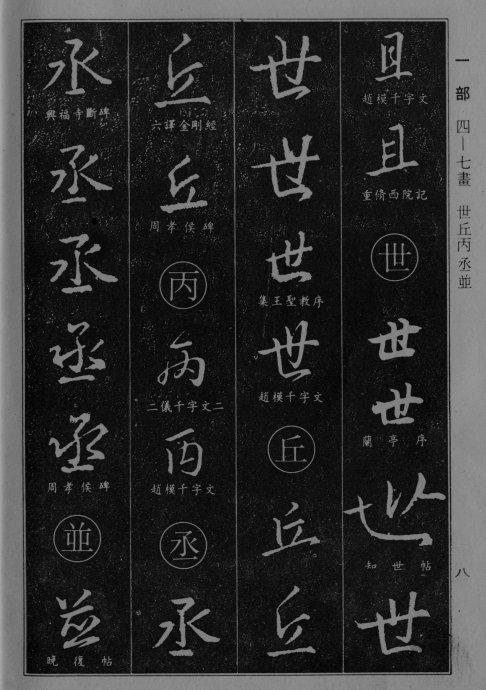 一部 四—七畫 世丘丙丞並 八
且
趙模千字文
且
重脩西院記
世
世
世
蘭亭序
世
知世帖
世
世
世
世
集王聖教序
世
趙模千字文
丘
丘
丘
丘
六譯金剛經
丘
周孝侯碑
丙
丙
二儀千字文二
丙
趙模千字文
丞
丞
丞
興福寺斷碑
丞
丞
丞
丞
周孝侯碑
並
並
晚復帖